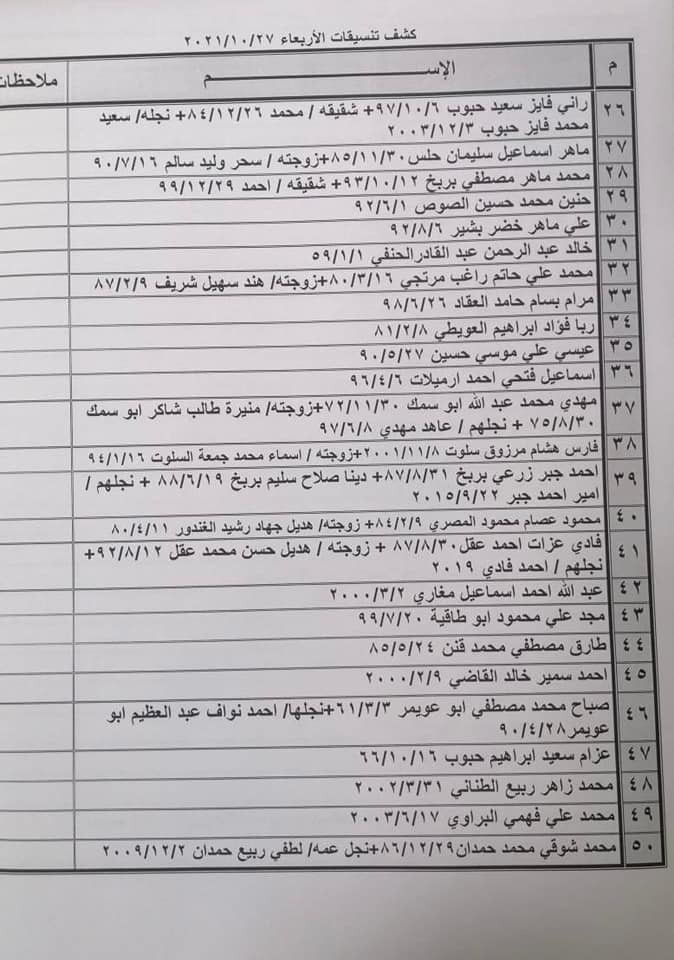 كشف تنسيقات الأربعاء ٢٠٢١/١٠/٢٧
م الإســـــم ملاحظات
٢٦ راني فايز سعيد حبوب ٩٧/١٠/٦+ شقيقه / محمد ٨٤/١٢/٢٦+ نجله/ سعيد
محمد فايز حبوب ٢٠٠٣/١٢/٣
٢٧ ماهر اسماعيل سليمان حلس ٨٥/١١/٣٠+زوجته / سحر وليد سالم ٩٠/٧/١٦
٢٨ محمد ماهر مصطفي بربخ ٩٣/١٠/١٢+ شقيقه / احمد ٩٩/١٢/٢٩
٢٩ حنين محمد حسين الصوص ٩٢/٦/١
٣٠ علي ماهر خضر بشير ٩٢/٨/٦
٣١ خالد عبد الرحمن عبد القادرالحنفي ٥٩/١/١
٣٢ محمد علي حاتم راغب مرتجي ٨٠/٣/١٦+زوجته/ هند سهيل شريف ٨٧/٢/٩
٣٣ مرام بسام حامد العقاد ٩٨/٦/٢٦
٣٤ ربا فؤاد ابراهيم العويطي ٨١/٢/٨
٣٥ عيسي علي موسي حسين ٩٠/٥/٢٧
٣٦ اسماعيل فتحي احمد ارميلات ٩٦/٤/٦
٣٧ مهدي محمد عبد الله ابو سمك ٧٢/١١/٣٠+زوجته/ منيرة طالب شاكر ابو سمك
٧٥/٨/٣٠ + نجلهم / عاهد مهدي ٩٧/٦/٨
٣٨ فارس هشام مرزوق سلوت ٢٠٠١/١١/٨+زوجته / اسماء محمد جمعة السلوت ٩٤/١/١٦
٣٩ احمد جبر زرعي بربخ ٨٧/٨/٣١+ دينا صلاح سليم بربخ ٨٨/٦/١٩ + نجلهم /
امير احمد جبر ٢٠١٥/٩/٢٢
٤٠ محمود عصام محمود المصري ٨٤/٢/٩+ زوجته/ هديل جهاد رشيد الغندور ٨٠/٤/١١
٤١ فادي عزات احمد عقل٨٧/٨/٣٠ + زوجته / هديل حسن محمد عقل ٩٢/٨/١٢+
نجلهم / احمد فادي ٢٠١٩
٤٢ عبد الله احمد اسماعيل مغاري ٢٠٠٠/٣/٢
٤٣ مجد علي محمود ابو طاقية ٩٩/٧/٢٠
٤٤ طارق مصطفي محمد قنن ٨٥/٥/٢٤
٤٥ احمد سمير خالد القاضي ٢٠٠٠/٢/٩
٤٦ صباح محمد مصطفي ابو عويمر ٦١/٣/٣+نجلها/ احمد نواف عبد العظيم ابو
عويمر٩٠/٤/٢٨
٤٧ عزام سعيد ابراهيم حبوب ٦٦/١٠/١٦
٤٨ محمد زاهر ربيع الطناني ٢٠٠٢/٣/٣١
٤٩ محمد علي فهمي البراوي ٢٠٠٣/٦/١٧
٥٠ محمد شوقي محمد حمدان٨٦/١٢/٢٩+نجل عمه/ لطفي ربيع حمدان ٢٠٠٩/١٢/٢